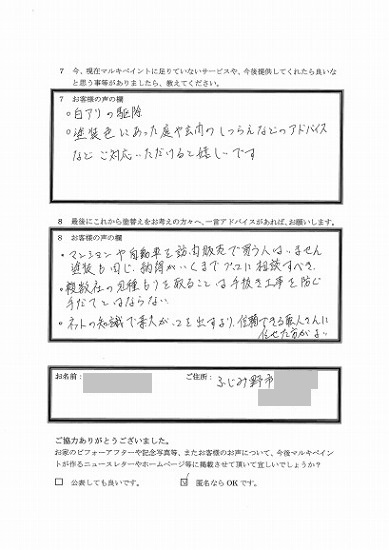 7 今、現在マルキペイントに足りていないサービスや、今後提供してくれたら良いな
と思う事等がありましたら、教えてください。
7 お客様の声の欄
○白アリの駆除
○塗装色にあった庭や玄関のしつらえなどのアドバイス
などご対応いただけると嬉しいです
8 最後にこれから塗替えをお考えの方々へ、一言アドバイスがあれば、お願いします。
8 お客様の声の欄
・マンションや自動車を訪問販売で買う人はいません
塗装も同じ、納得がいくまでプロに相談すべき。
・複数社の見積もりを取ることは手抜き工事を防ぐ
手だてとはならない
・ネットの知識で素人が口を出すより、信頼できる職人さんに
任せた方がよい
お名前: ご住所: ふじみ野市
ご協力ありがとうございました。
お家のビフォーアフターや記念写真等、またお客様のお声について、今後マルキペイント
が作るニュースレターやホームページ等に掲載させて頂いて宜しいでしょうか?
□ 公表しても良いです。 ☑ 匿名ならOKです。